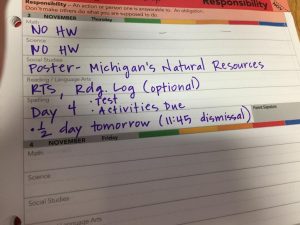 Responsibility
Responsibility – An action or person one is answerable to. An obligation.
Don't make others do what you are supposed to do.
3 NOVEMBER Thursday
Math
NO HW
Science
NO HW
Social Studies
Poster- Michigan's Natural Resources
Reading / Language Arts
RTS, Rdg. Log (optional)
Spelling
Day 4 · Test
· Activities Due
· 1/2 day tomorrow (11:45 dismissal)
Parent Signature
4 NOVEMBER Friday
Math
Science
Social Studies
Language Arts